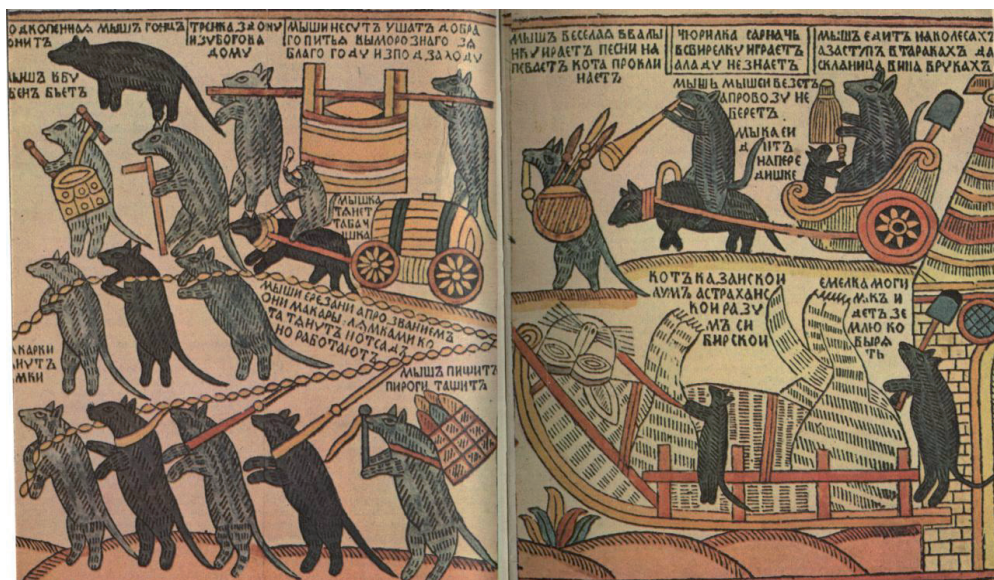 ОДКОПЕННАЯ МЫШЪ ГОНЕЦЪ
ОНИТЪ
ТРЕНКА ЗДОНУ
ИЗУБОГОВА
ДОМУ
МЫШИ НЕСУТЪ УШАТЪ ДОБРА
ГО ПИТЬЯ ВЫМОРОЗНАГО ЗА
БЛАГО ГОДУ ИЗПОДЗАХОДУ
МЫШЪ ВБУ
БЕНЪ БЬЕТЪ
МЫШКА
ТЯНЕТ
ТАБАЧ
ШКА
МЫШИ ЕРЕЗАНИ АПРОЗВАНИЕМЪ
ОНИ МАКАРЫ ЛЯМКАМИ КО
ТА ТЯНУТЪ ПОТСАДЪ
НО РАБОТАЮТЪ
АКАРКИ
ЯНУТЪ
МКИ
МЫШЪ ПИШИТЪ
ПИРОГИ ТАШИТЪ
МЫШЪ ВЕСЕЛАЯ ВВАЛЫ
НКУ ИРАЕТЪ ПЕСНИ НА
ПЕВАЕТЪ КОТА ПРОКЛИ
НАЕТЪ
ЧЮРИЛКА САРНАЧЬ
ВСВИРЕЛКУ ИГРАЕТЪ
АЛАДУ НЕЗНАЕТЪ
МЫШЪ ЕДИТЪ НАКОЛЕСАХЪ
АЗАСТУПЪ ВТАРАКАХЪ ДА
СКЛАНИЦА ВИНА ВРУКАХЪ
МЫШЬ МЫШСИ ВЕЗЕТЪ
АПРОВОЗУ НЕ
БЕРЕТЪ
МЫКА СИ
ДИТЪ
НАПЕРЕ
ДИШКЕ
КОТЪ КАЗАНСКОИ
АУМЪ АСТРАХАНС
КОИ РАЗУ
МЪ СИ
БИРСКОИ
ЕМЕЛКА МОГИ
ЛЯКЪ И
ДЕТЪ ЗЕ
МЛЮ КО
ВЫРЯ
ТЬ